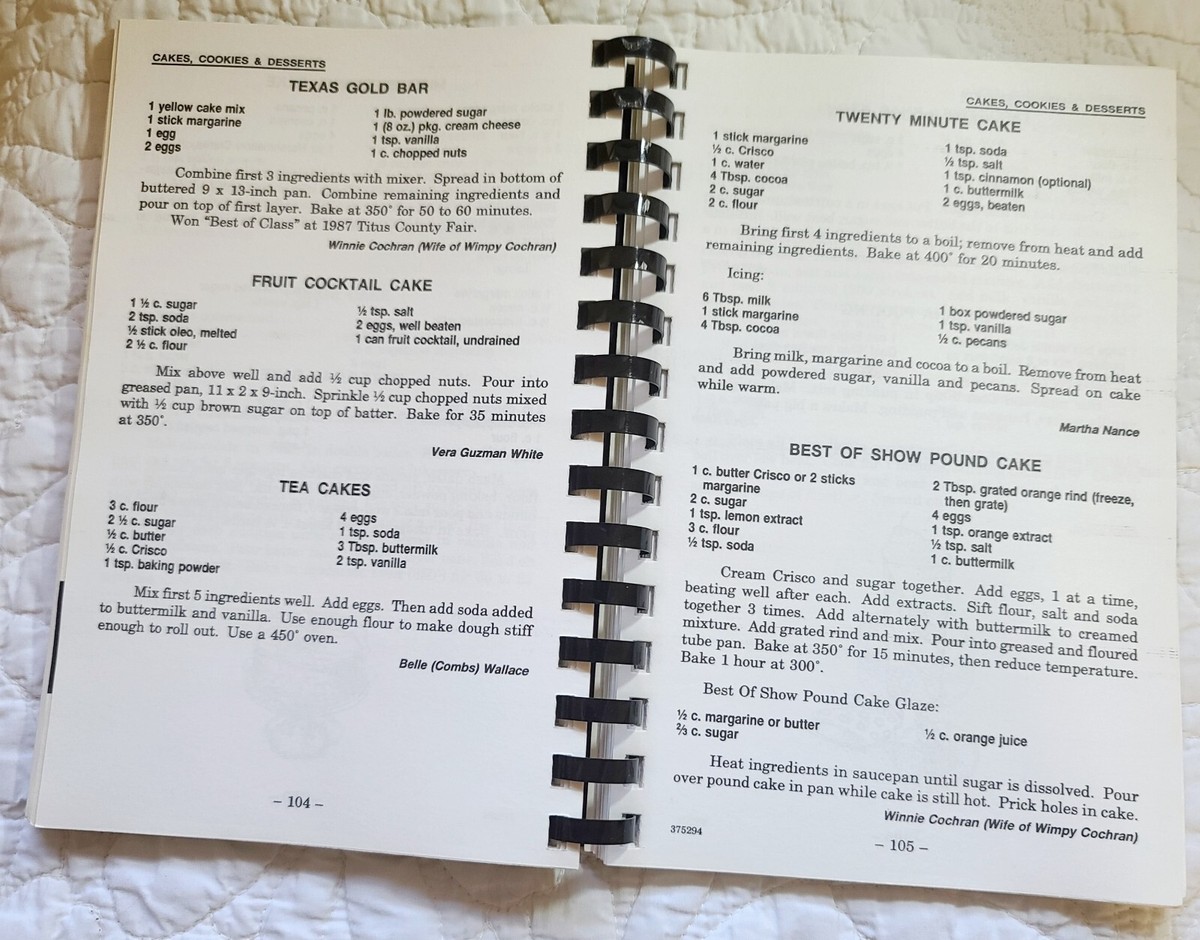 CAKES, COOKIES & DESSERTS
TEXAS GOLD BAR
1 yellow cake mix
1 stick margarine
1 egg
2 eggs
1 lb. powdered sugar
1 (8 oz.) pkg. cream cheese
1 tsp. vanilla
1 c. chopped nuts
Combine first 3 ingredients with mixer. Spread in bottom of
buttered 9 x 13-inch pan. Combine remaining ingredients and
pour on top of first layer. Bake at 350° for 50 to 60 minutes.
Won "Best of Class" at 1987 Titus County Fair.
Winnie Cochran (Wife of Wimpy Cochran)
FRUIT COCKTAIL CAKE
1 ½ c. sugar
2 tsp. soda
½ stick oleo, melted
2 ½ c. flour
½ tsp. salt
2 eggs, well beaten
1 can fruit cocktail, undrained
Mix above well and add ½ cup chopped nuts. Pour into
greased pan, 11 x 2 x 9-inch. Sprinkle ½ cup chopped nuts mixed
with ½ cup brown sugar on top of batter. Bake for 35 minutes
at 350°.
Vera Guzman White
TEA CAKES
3 c. flour
2 ½ c. sugar
½ c. butter
½ c. Crisco
1 tsp. baking powder
4 eggs
1 tsp. soda
3 Tbsp. buttermilk
2 tsp. vanilla
Mix first 5 ingredients well. Add eggs. Then add soda added
to buttermilk and vanilla. Use enough flour to make dough stiff
enough to roll out. Use a 450° oven.
Belle (Combs) Wallace
– 104 –
CAKES, COOKIES & DESSERTS
TWENTY MINUTE CAKE
1 stick margarine
½ c. Crisco
1 c. water
4 Tbsp. cocoa
2 c. sugar
2 c. flour
1 tsp. soda
½ tsp. salt
1 tsp. cinnamon (optional)
1 c. buttermilk
2 eggs, beaten
Bring first 4 ingredients to a boil; remove from heat and add
remaining ingredients. Bake at 400° for 20 minutes.
Icing:
6 Tbsp. milk
1 stick margarine
4 Tbsp. cocoa
1 box powdered sugar
1 tsp. vanilla
½ c. pecans
Bring milk, margarine and cocoa to a boil. Remove from heat
and add powdered sugar, vanilla and pecans. Spread on cake
while warm.
Martha Nance
BEST OF SHOW POUND CAKE
1 c. butter Crisco or 2 sticks
margarine
2 c. sugar
1 tsp. lemon extract
3 c. flour
½ tsp. soda
2 Tbsp. grated orange rind (freeze,
then grate)
4 eggs
1 tsp. orange extract
½ tsp. salt
1 c. buttermilk
Cream Crisco and sugar together. Add eggs, 1 at a time,
beating well after each. Add extracts. Sift flour, salt and soda
together 3 times. Add alternately with buttermilk to creamed
mixture. Add grated rind and mix. Pour into greased and floured
tube pan. Bake at 350° for 15 minutes, then reduce temperature.
Bake 1 hour at 300°.
Best Of Show Pound Cake Glaze:
½ c. margarine or butter
⅔ c. sugar
½ c. orange juice
Heat ingredients in saucepan until sugar is dissolved. Pour
over pound cake in pan while cake is still hot. Prick holes in cake.
Winnie Cochran (Wife of Wimpy Cochran)
375294
– 105 –